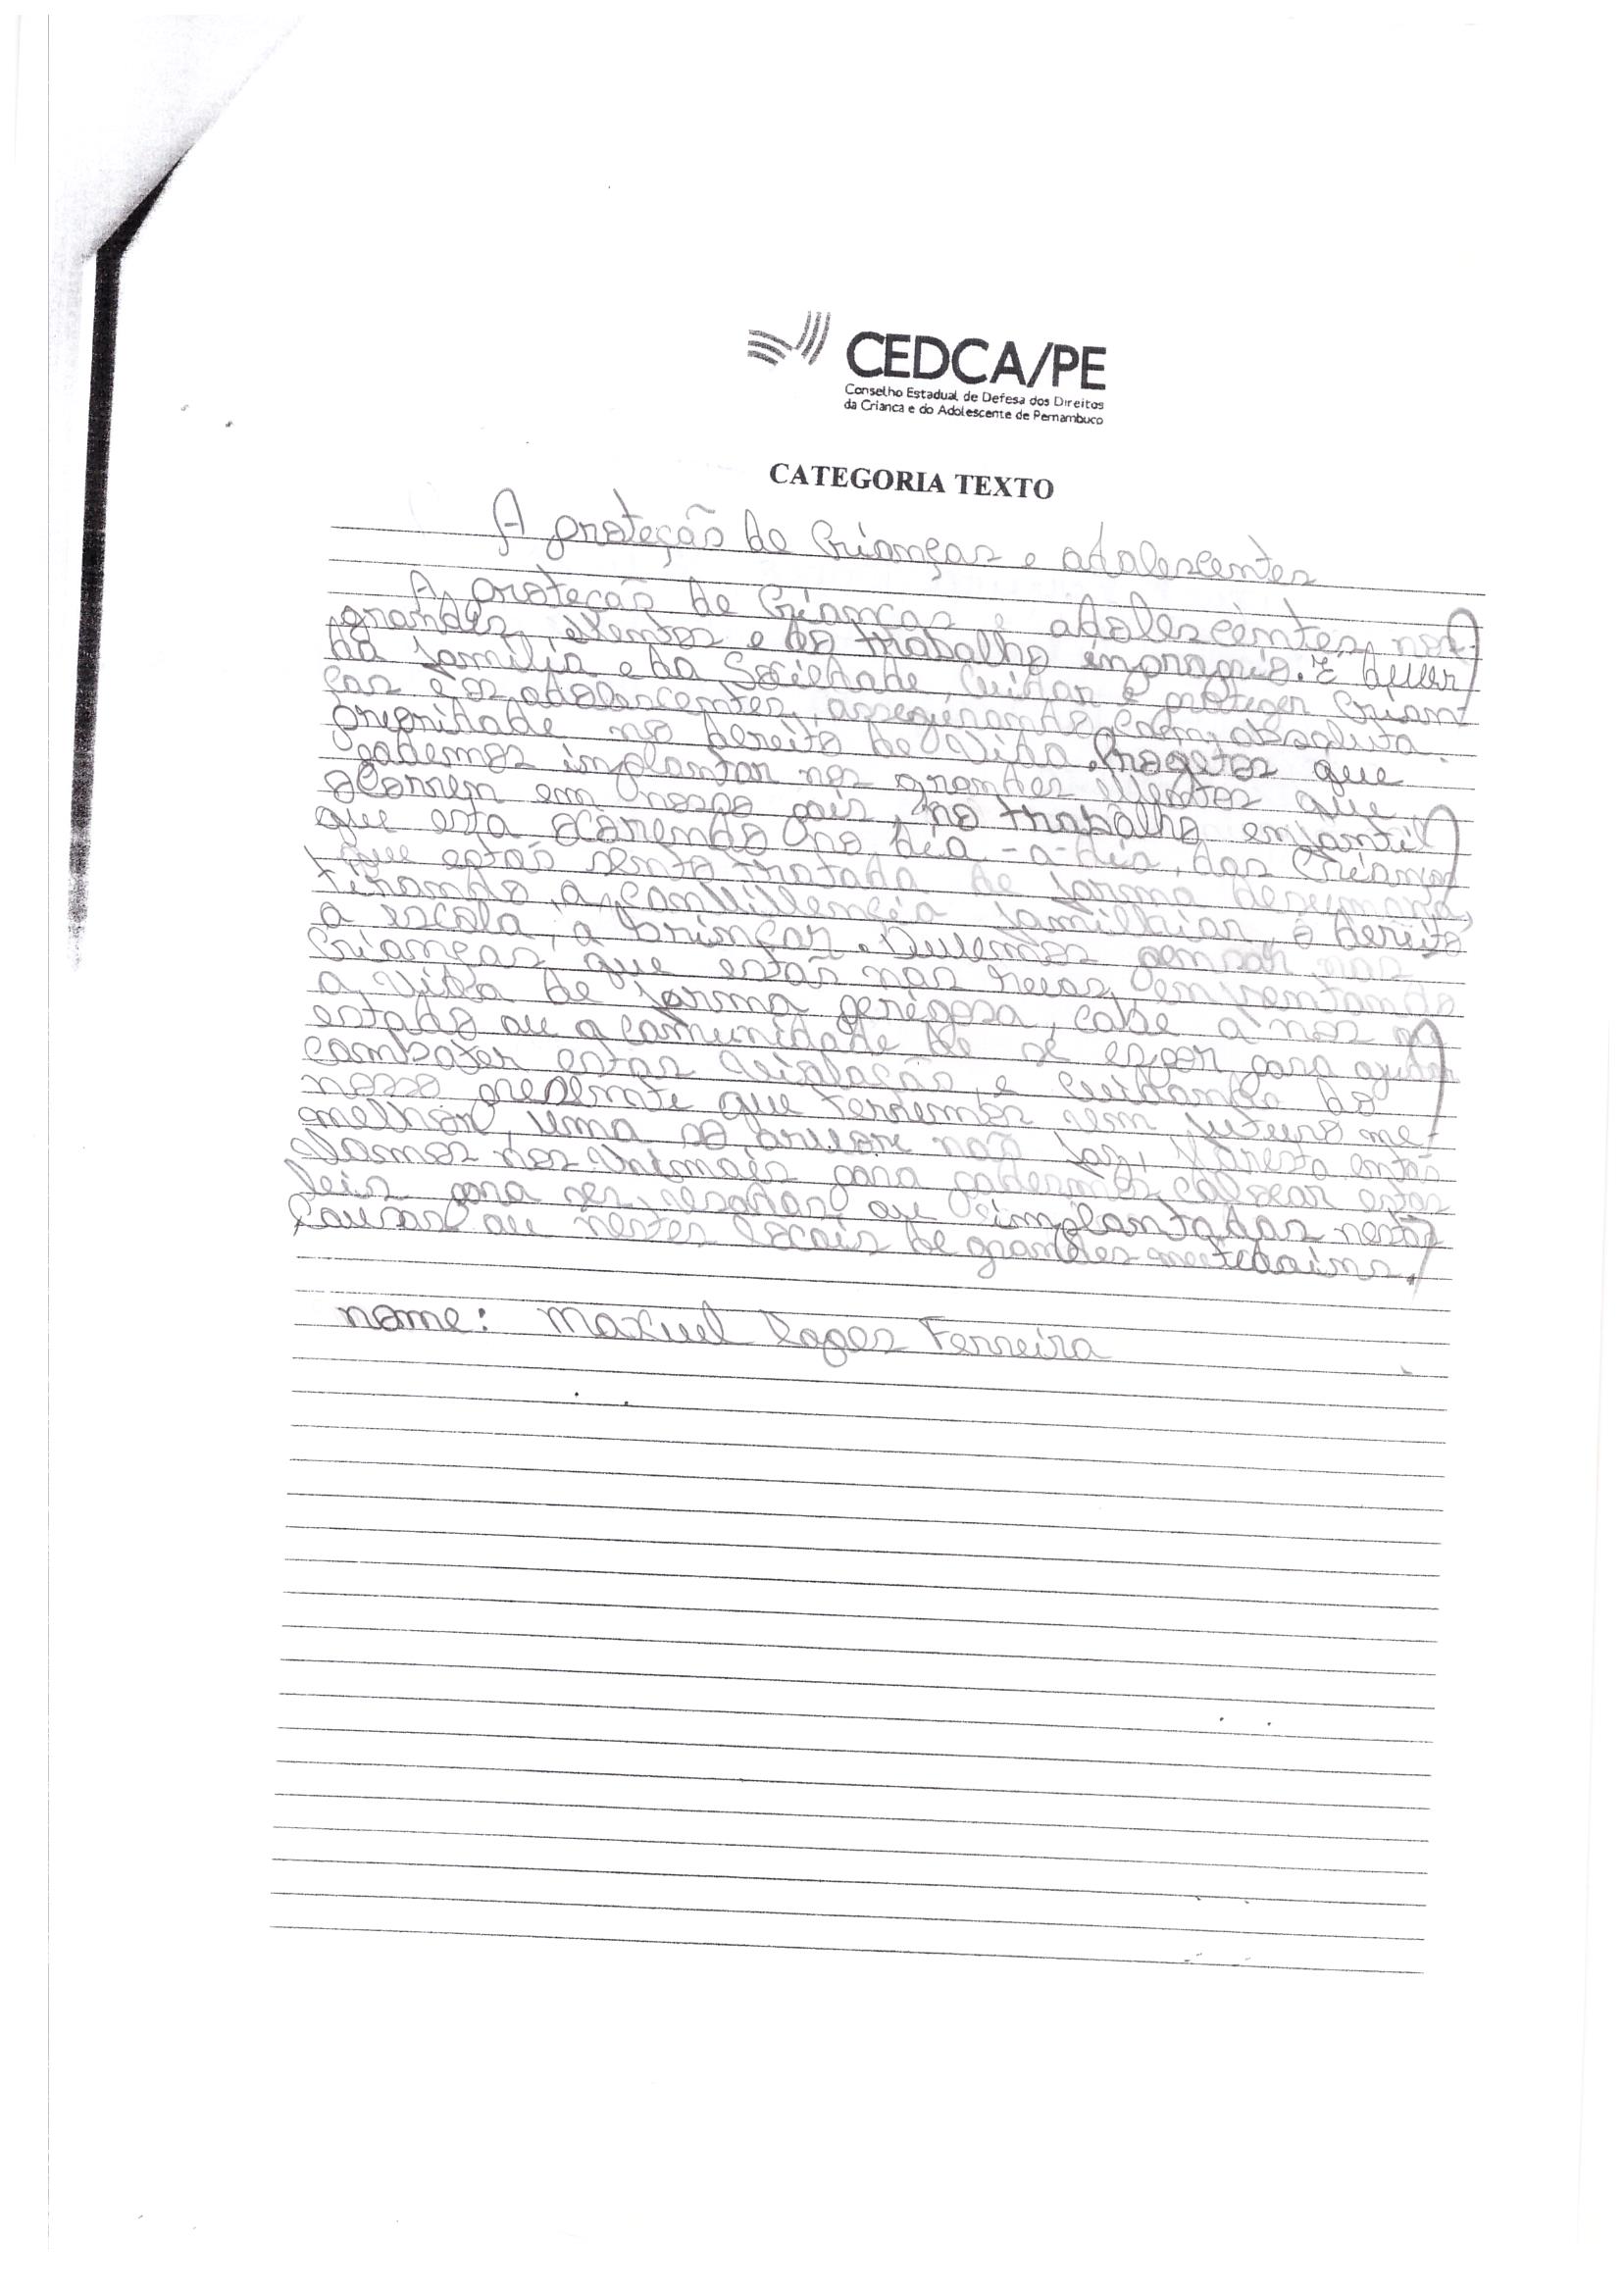 CEDCA/PE
Conselho Estadual de Defesa dos Direitos
da Crianca e do Adolescente de Pernambuco
CATEGORIA TEXTO
A proteção de Crianças e adolescentes
A proteção de Crianças e adolescentes, nos
grandes eventos e do trabalho
da família e da Sociedade, cuidar e proteger Crian-
ças e os adolescentes, assegurando com absoluta
prioridade no dereito de Vida. Progetos que
podemos implantar nos grandes eventos que
ocorrem em nosso pais, no trabalho enfantil
que esta ocorendo no dia-a-dia, das Crianças
que estão sento tratada de forma
tirando, a familhiar, o dereito
a escola, a brincar. Devemos pensar nas
Crianças, que estão nas ruas, enfrentando
a vida de forma perigosa, cabe a nos o
estado ou a comunidade de se expor para ajudar
combater estas violação, e cuidando do
nosso presente que teremos um futuro me-
melhor, uma so arvore não faz, floresta então
Vamos nos para podermos colocar estas
leis para ser ou implantadas nestas
Causas ou nestes locais de grandes
nome: Maxuel Lopes Ferreira